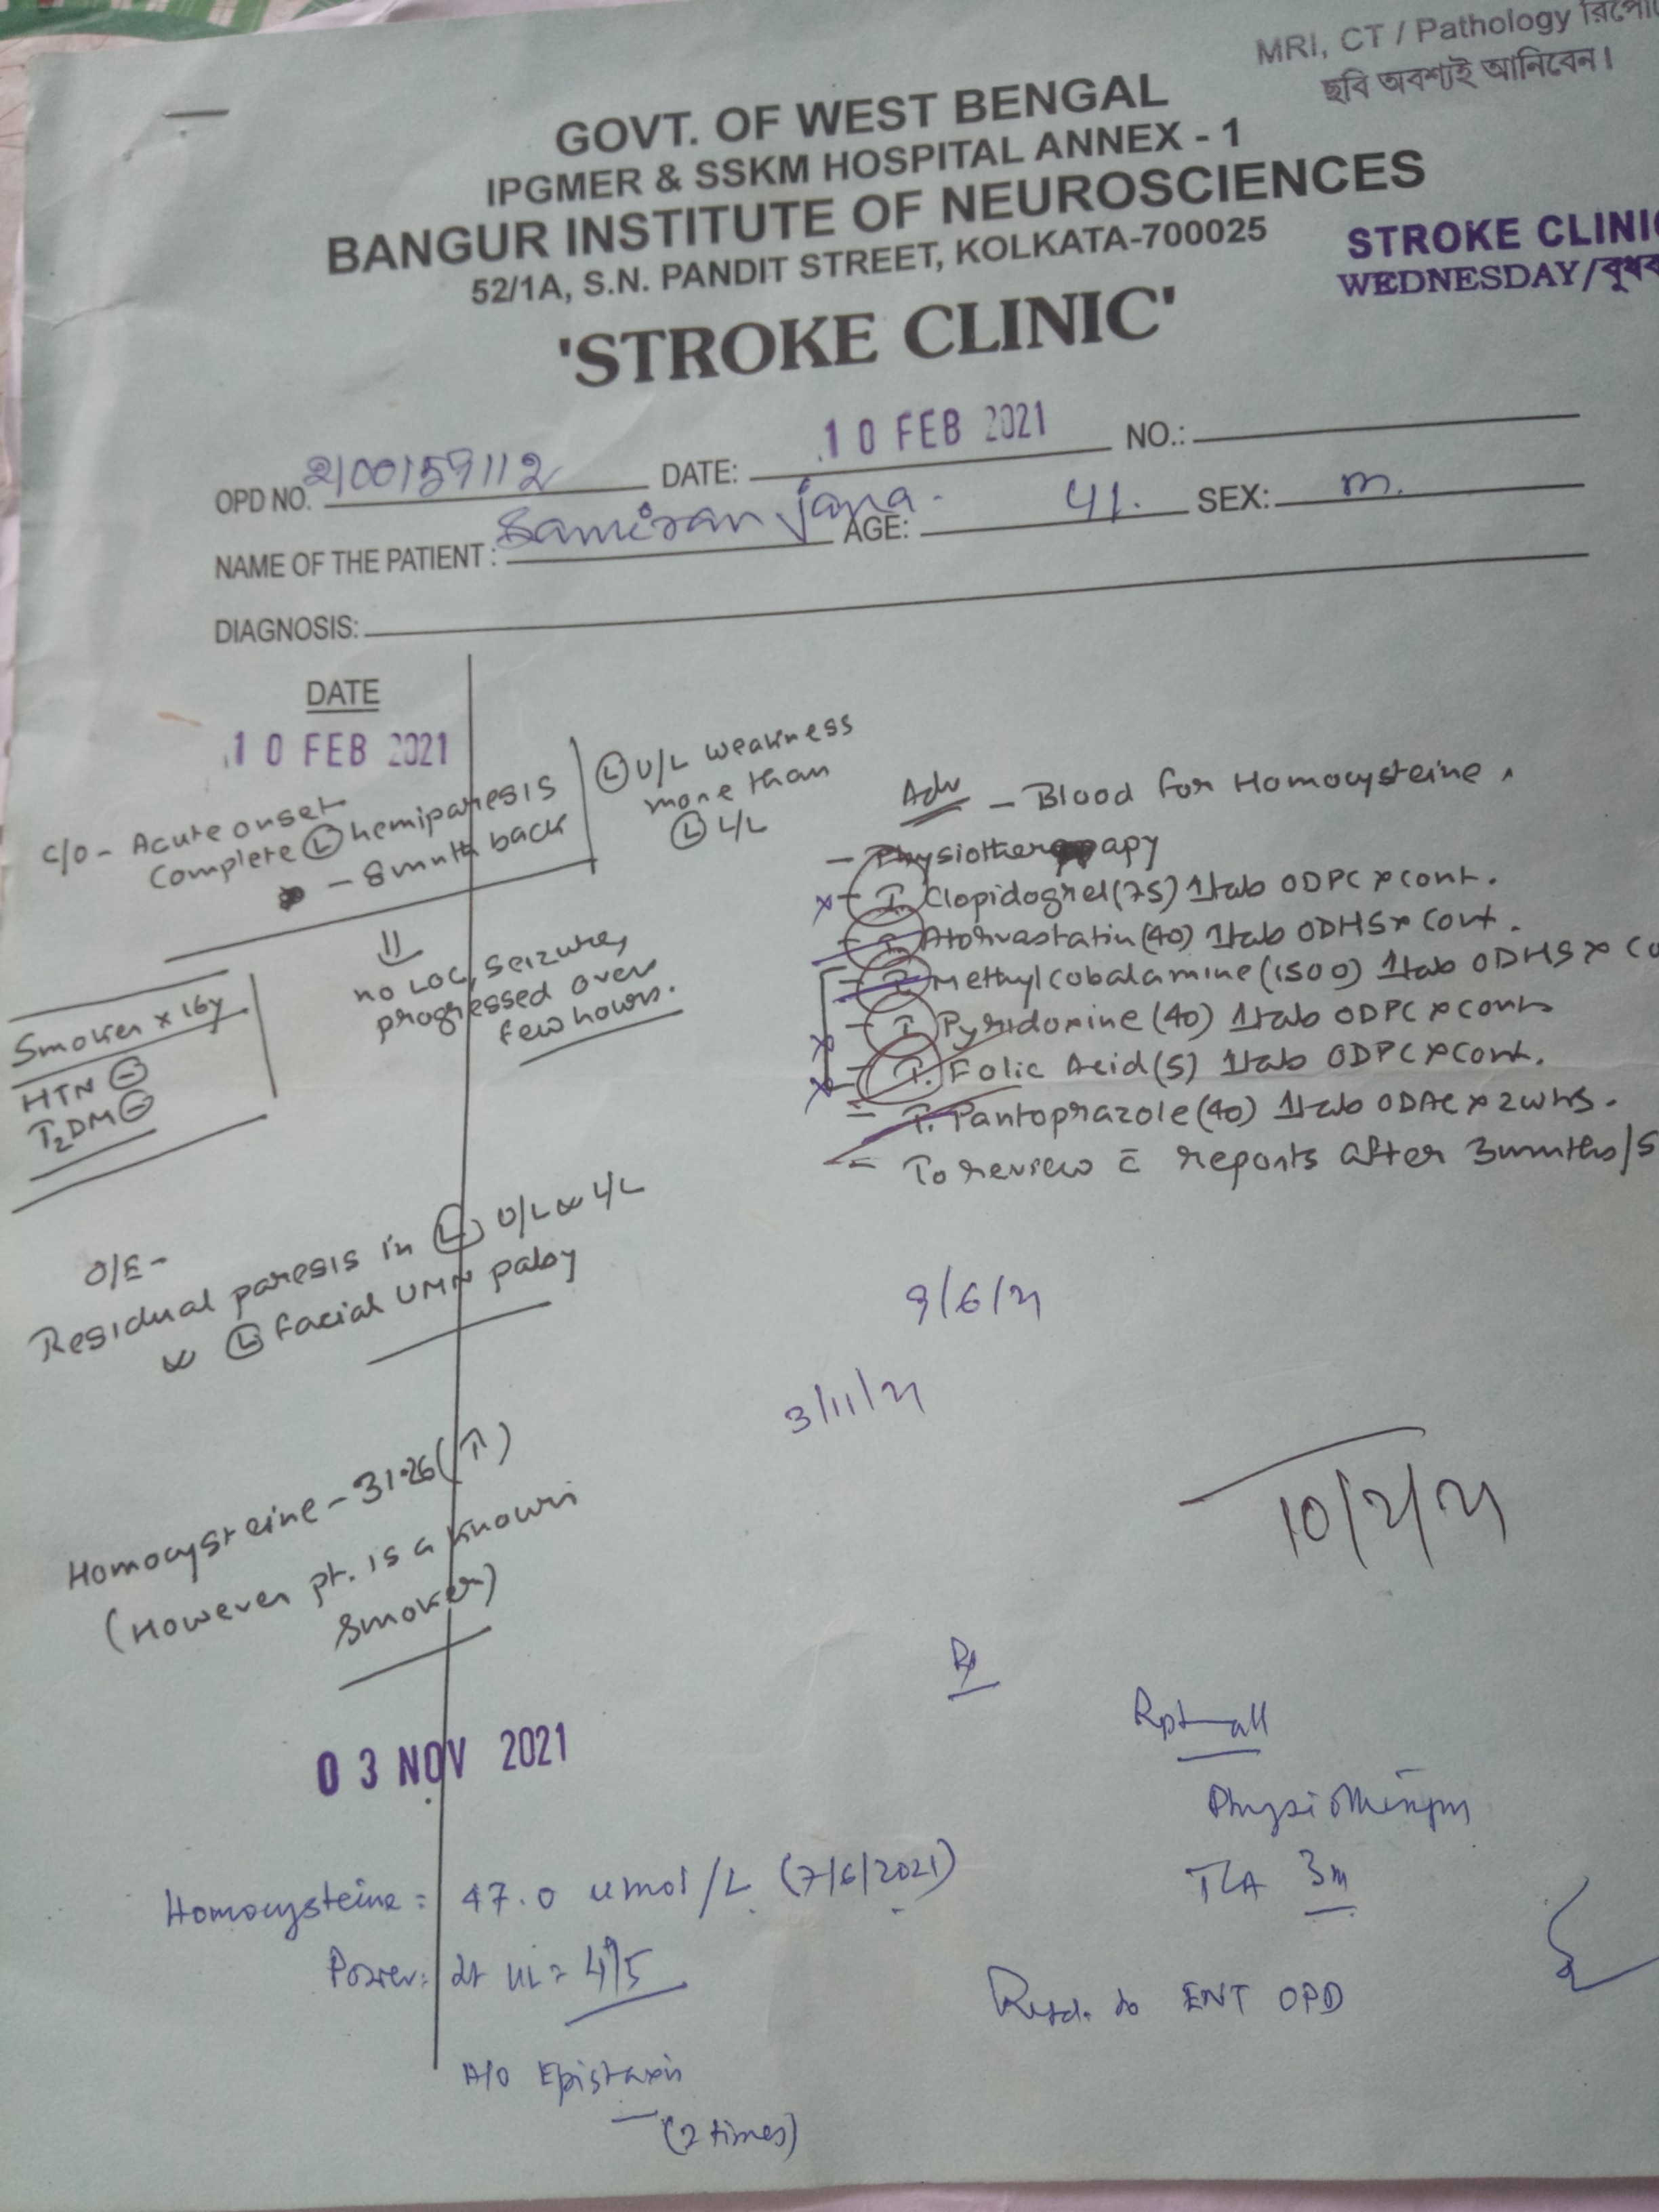 MRI, CT / Pathology
ছবি অবশ্যই আনিবেন।
GOVT. OF WEST BENGAL
IPGMER & SSKM HOSPITAL ANNEX - 1
BANGUR INSTITUTE OF NEUROSCIENCES
52/1A, S.N. PANDIT STREET, KOLKATA-700025
STROKE CLINIC
WEDNESDAY/
'STROKE CLINIC'
OPD NO. 2100157112 DATE: 10 FEB 2021 NO.:
NAME OF THE PATIENT : Samiran jana. AGE: 41. SEX: m.
DIAGNOSIS:
DATE
10 FEB 2021
C/O - Acute onset
Complete (L) hemiparesis
- 8 mnth back
(L) U/L weakness
more than
(L) L/L
no LOC, seizure,
progressed over
few hours.
Smoker x 16y
HTN (-)
T2DM (-)
O/E -
Residual paresis in (L) U/L & L/L
& (L) facial UMN palsy
Homocysteine - 31.26 (↑)
(However pt. is a known
smoker)
Adv - Blood for Homocysteine.
- Physiotherapy
- T. Clopidogrel (75) 1tab ODPC x cont.
- T. Atorvastatin (40) 1tab ODHS x cont.
- T. Methylcobalamine (1500) 1tab ODHS x co
- T. Pyridoxine (40) 1tab ODPC x cont
- T. Folic Acid (5) 1tab ODPC x cont.
- T. Pantoprazole (40) 1tab ODAC x 2wks.
- To review c̄ reports after 3 mnths/S
9/6/21
3/11/21
10/2/21
03 NOV 2021
Homocysteine = 47.0 umol/L (7/6/2021)
Power: Lt UL = 4/5
H/O Epistaxis
- (2 times)
Rx
Rpt all
Physiotherapy
TCA 3m
Refd. to ENT OPD